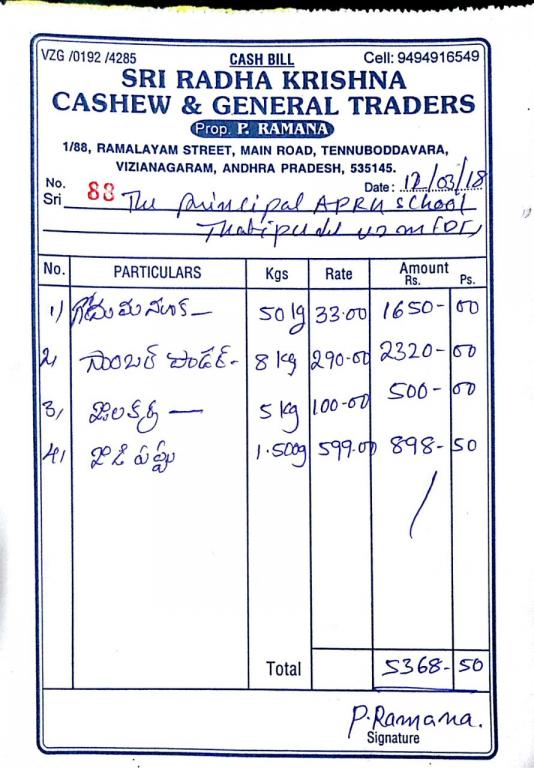 VZG /0192 /4285 CASH BILL Cell: 9494916549
SRI RADHA KRISHNA
CASHEW & GENERAL TRADERS
Prop. P. RAMANA
1/88, RAMALAYAM STREET, MAIN ROAD, TENNUBODDAVARA,
VIZIANAGARAM, ANDHRA PRADESH, 535145.
No. 88 Date: 12/03/18
Sri The principal APRH School
No. PARTICULARS Kgs Rate Amount Rs. Ps.
1) 50 kg 33.00 1650- 00
2, సాంబార్ పౌడర్- 8 kg 290-00 2320- 00
3, జీలకర్ర — 5 kg 100-00 500- 00
4, జీడిపప్పు 1.500g 599.00 898- 50
Total 5368- 50
P. Ramana.
Signature